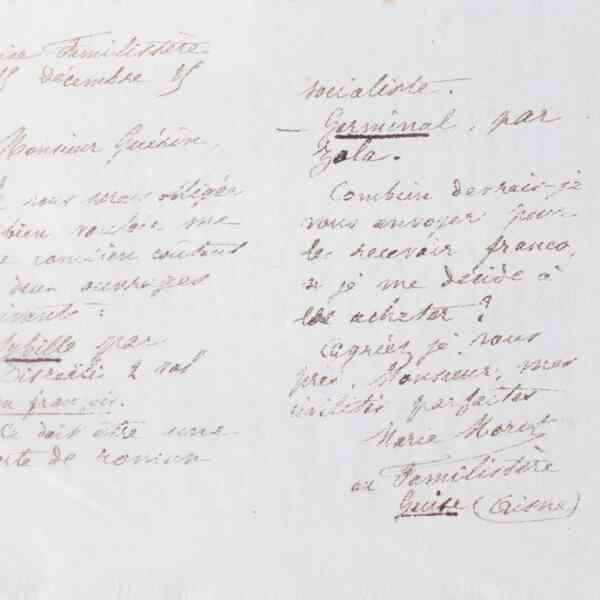 ise Familistère
15 décembre 85
Monsieur Guérin,
vous serais obligée
bien vouloir me
combien coûtent
deux ouvrages
ivants :
Sybille par
Disraëli 2 vol
en français.
Ce doit être une
orte de roman
socialiste.
— Germinal, par
Zola.
Combien devrais-je
vous envoyer pour
les recevoir franco,
si je me décide à
les acheter ?
Agréez, je vous
prie, Monsieur, mes
civilités parfaites
Marie Moret
au Familistère
Guise (Aisne)